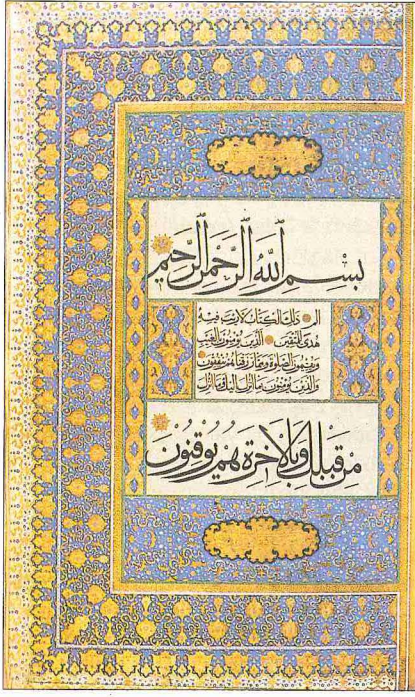 بِسْمِ ٱللَّهِ ٱلرَّحْمَٰنِ ٱلرَّحِيمِ
الم ذٰلِكَ الْكِتَابُ لَا رَيْبَ فِيهِ
هُدًى لِلْمُتَّقِينَ الَّذِينَ يُؤْمِنُونَ بِالْغَيْبِ
وَيُقِيمُونَ الصَّلٰوةَ وَمِمَّا رَزَقْنَاهُمْ يُنْفِقُونَ
وَالَّذِينَ يُؤْمِنُونَ بِمَا أُنْزِلَ إِلَيْكَ وَمَا أُنْزِلَ
مِنْ قَبْلِكَ وَبِالْاٰخِرَةِ هُمْ يُوقِنُونَ